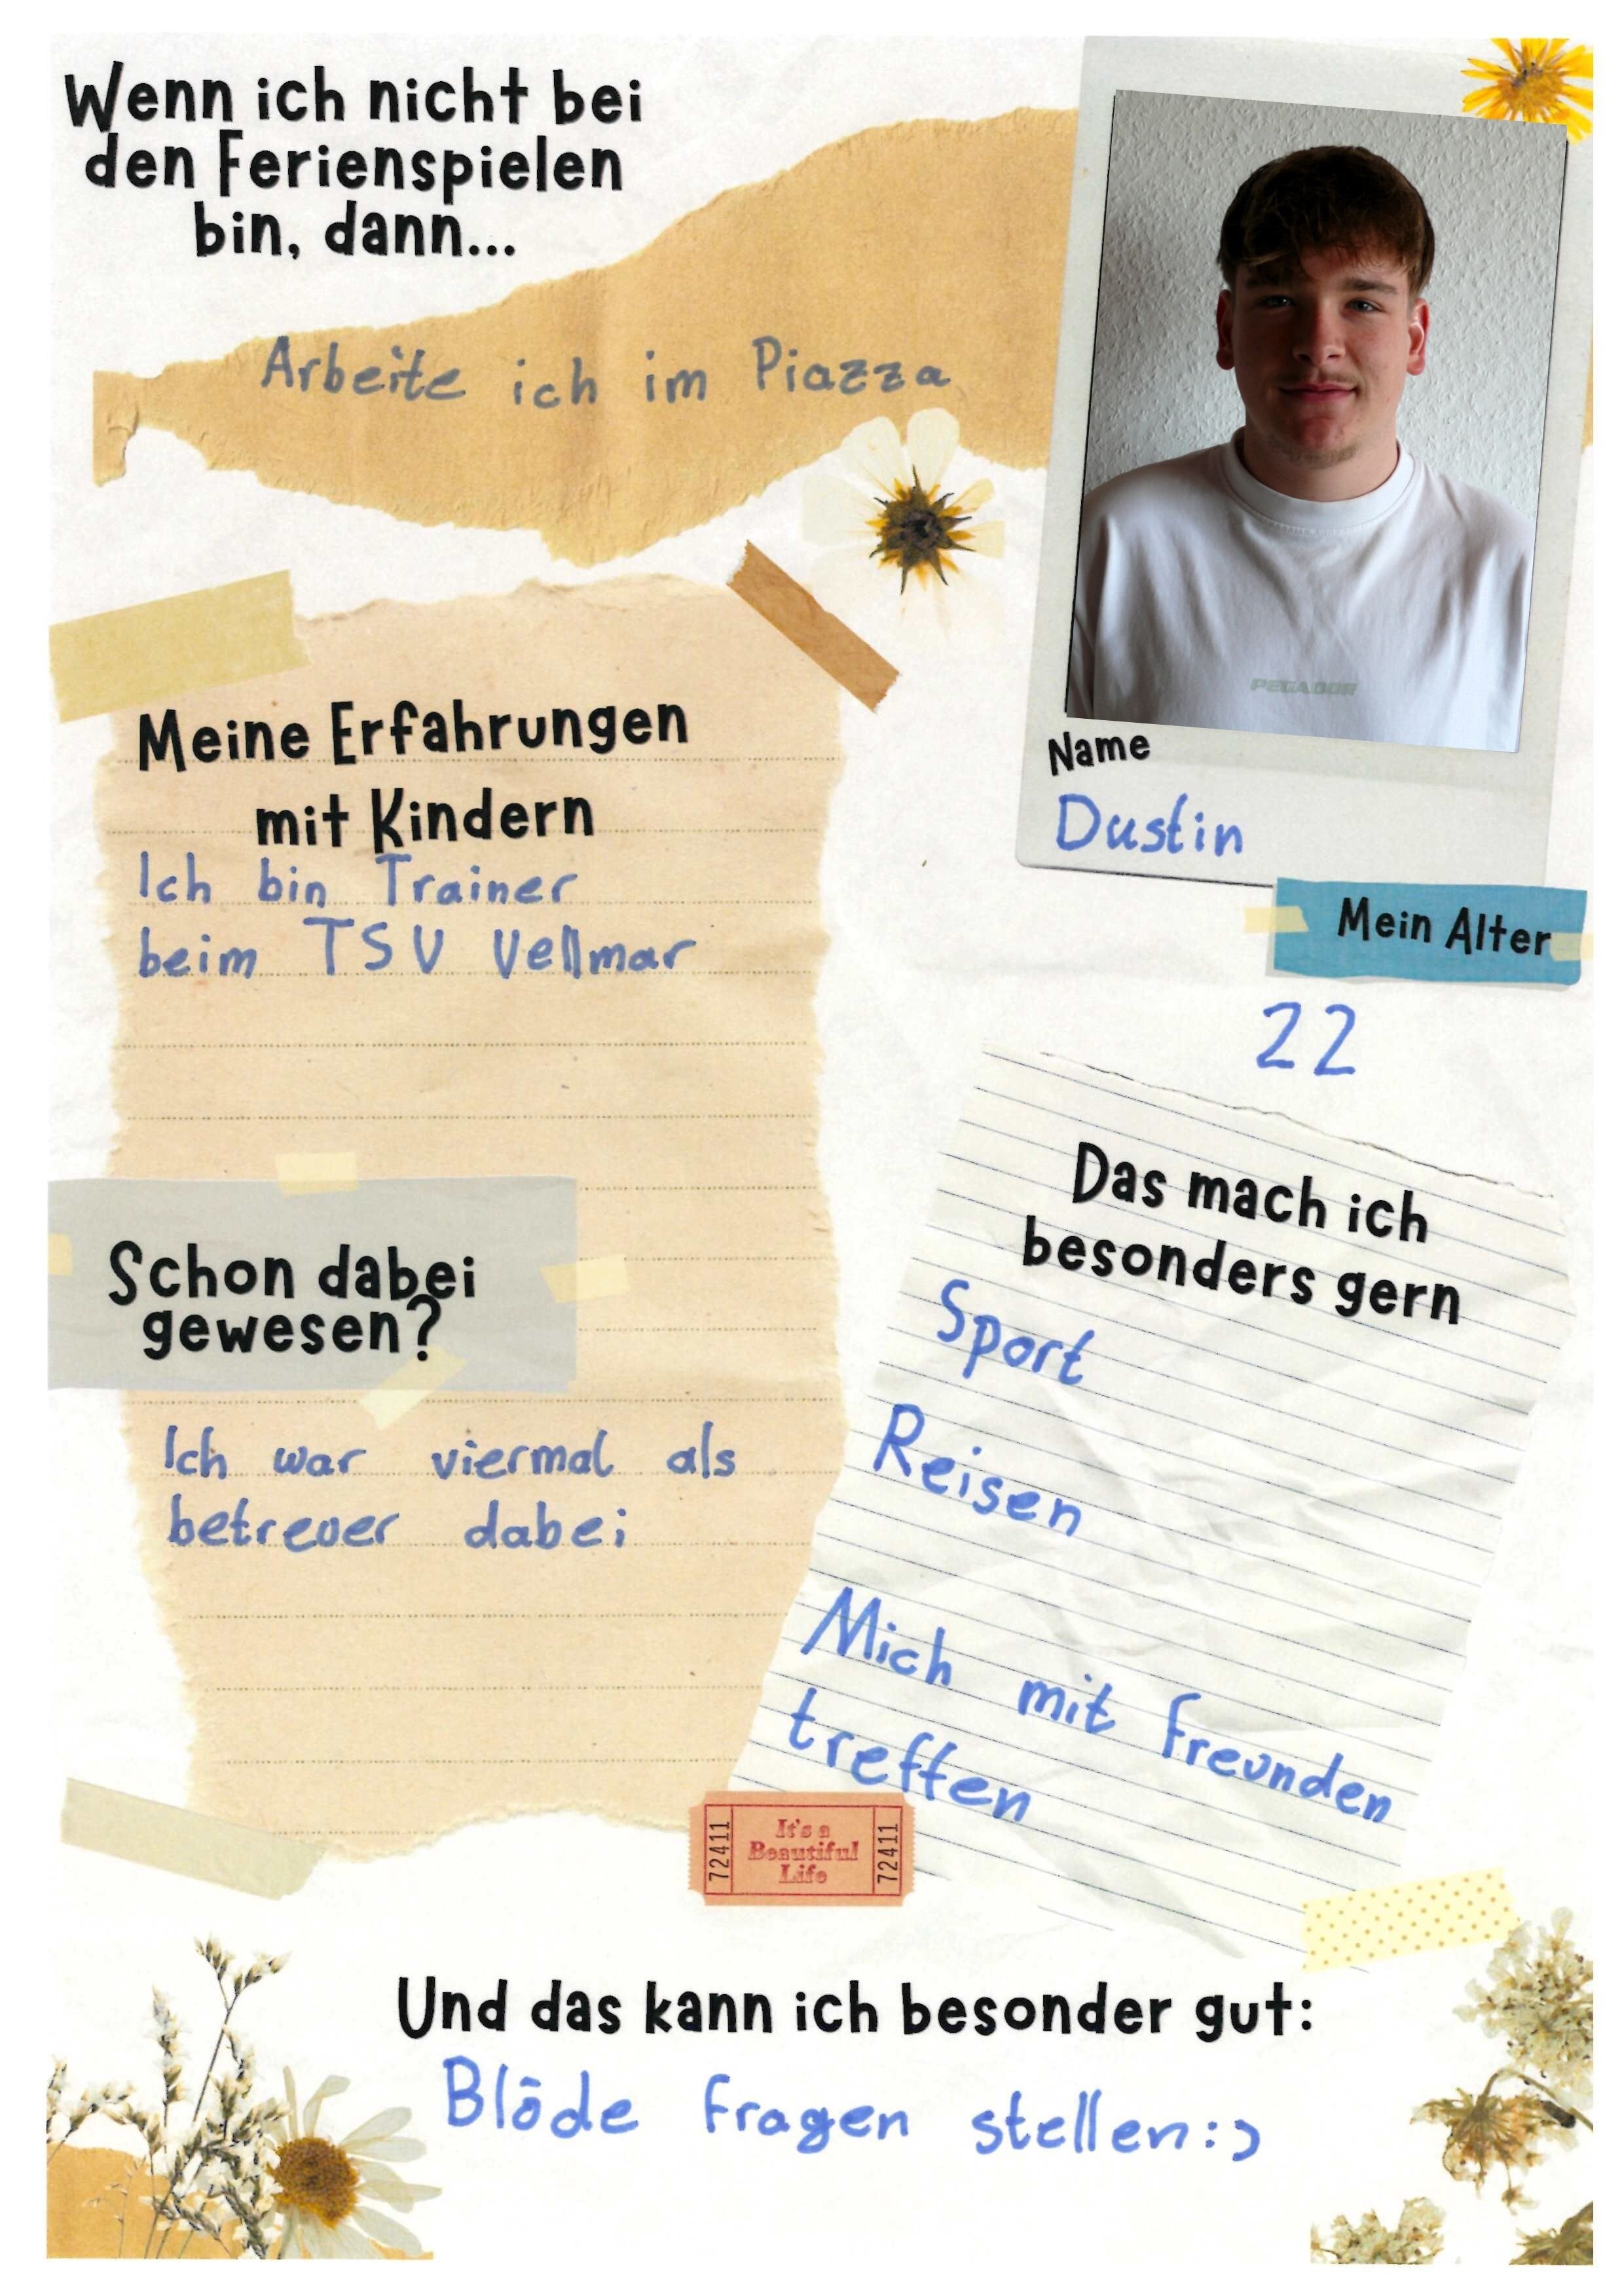 Wenn ich nicht bei
den Ferienspielen
bin, dann...
Arbeite ich im Piazza
PEGADOR
Name
Dustin
Mein Alter
22
Meine Erfahrungen
mit Kindern
Ich bin Trainer
beim TSV Vellmar
Schon dabei
gewesen?
Ich war viermal als
betreuer dabei
Das mach ich
besonders gern
Sport
Reisen
Mich mit freunden
treffen
72411
It's a
Beautiful
Life
72411
Und das kann ich besonder gut:
Blöde fragen stellen:)